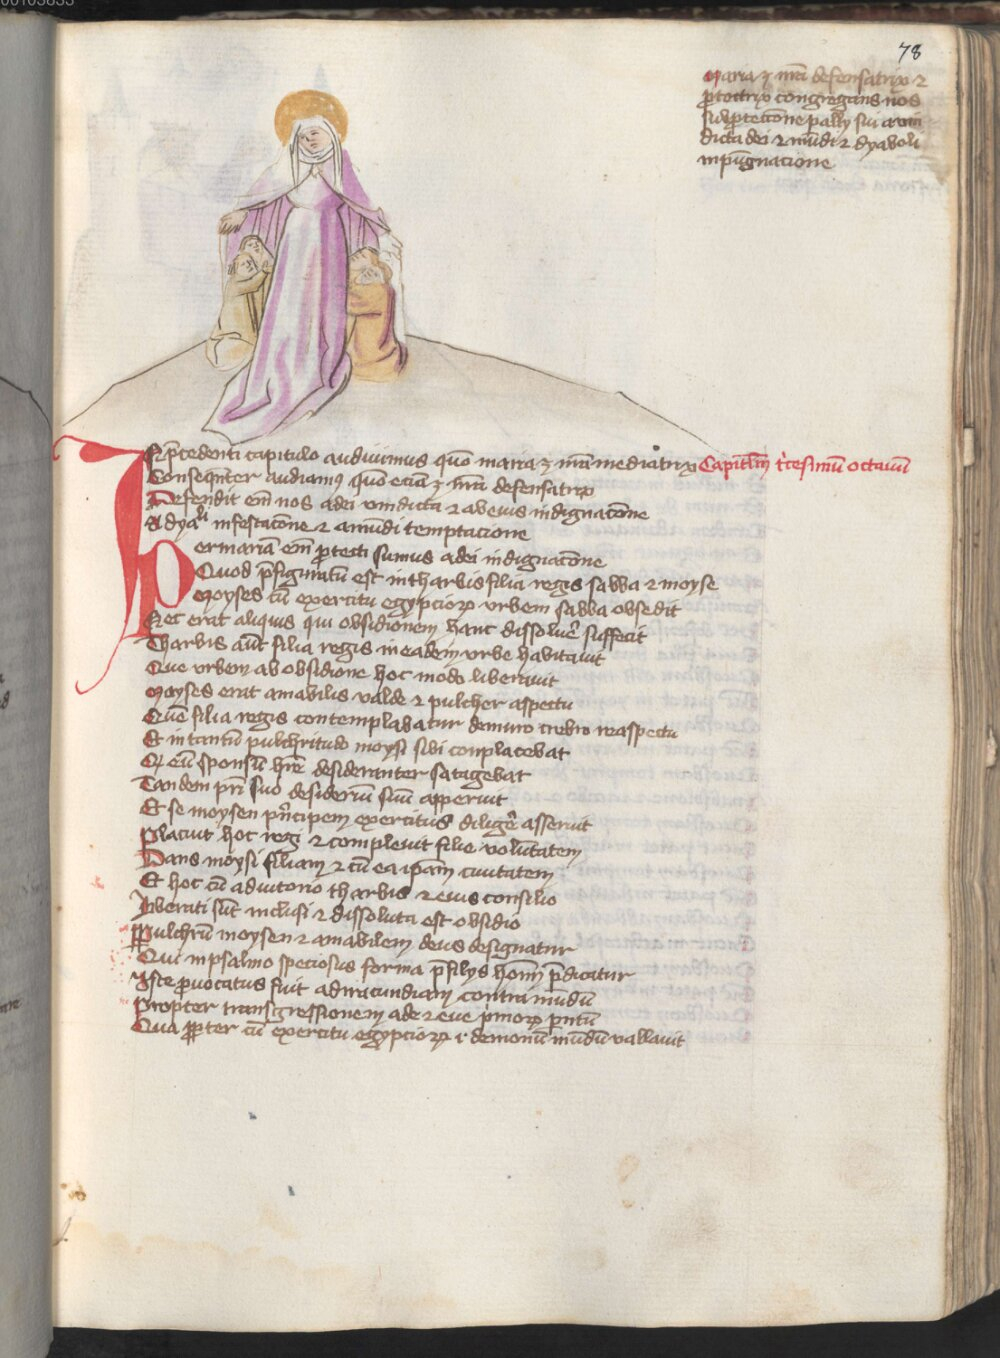 00103833
78
Maria ē nr̄a defensatrix ⁊
ꝓtectrix congregans nos
sub ꝓtectiōne pallij sui a vin
dicta dei ⁊ mūdi ⁊ dyaboli
inpūgnacione
IN p̄cedenti capitulo audiuimus quō maria ē nr̄a mediatrix Capitlm̄ tͥcesimū octauū
Conseqn̄ter audiamꝰ quō eciā ē nr̄a defensatrix
Defendit em̄ nos a dei vindicta ⁊ ab eius indignacōne
A dyabͦli infestacōne ⁊ a mūdi temptacione
Per mariā em̄ ꝓtecti sumus a dei indignacōne
Quod p̄figuratū est in tharbis filia regis sabba ⁊ moyse
Moyses cū exercitu egypcioꝝ vrbem sabba obsedit
Nec erat aliquis qui obsidionem hanc dissoluē suffecit
Tharbis aūt filia regis in eadem vrbe habitauit
Que vrbem ab obsidione hoc modo liberauit
Moyses erat amabilis valde ⁊ pulcher aspectu
Quē filia regis contemplabatur de muro crebro respectu
Et in tantū pulchritudo moysi sibi conplacebat
Qꝫ eū sponsū hr̄e desideranter satagebat
Tandem pr̄i suo desideriū suū apperuit
Et se moysen pͥncipem exercitus diligē asseruit
Placuit hoc regi ⁊ compleuit filie volūtatem
Dans moysi filiam ⁊ cū ea ip̄am ciuitatem
Et hoc cū adiutorio tharbis ⁊ eius consilio
Liberati sūt inclusi ⁊ dissoluta est obsidio
Per pulchrū moysen ⁊ amabilem deus designatur
Qui in psalmo speciosus forma p̄ filijs hom̄ p̄dicatur
Iste ꝓuocatus fuit ad iracundiam contra mūdū
Propter transgressionem ade ⁊ eue pͥmoꝝ pn̄tū
Qua ꝓpter cū exercitu egypcioꝝ .i. demonū mūdū vallauit